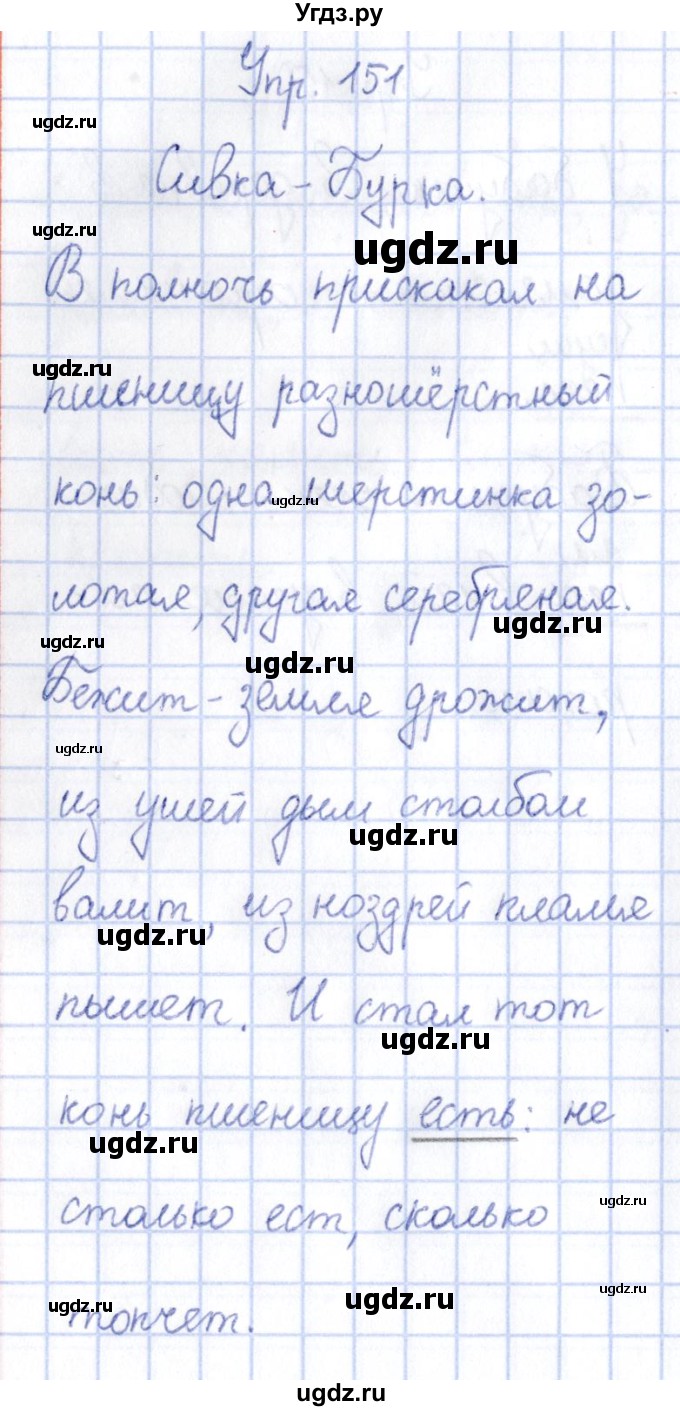 Угдз.ру
Упр. 151
ugdz.ru
Сивка-Бурка.
ugdz.ru
ugdz.ru
В полночь прискакал на
ugdz.ru
пшеницу разношёрстный
конь: одна шерстинка зо-
ugdz.ru
лотая, другая серебряная.
ugdz.ru
ugdz.ru
ugdz.ru
Бежит - земля дрожит,
ugdz.ru
из ушей дым столбом
ugdz.ru
валит, из ноздрей пламя
ugdz.ru
пышет. И стал тот
ugdz.ru
конь пшеницу есть: не
ugdz.ru
столько ест, сколько
ugdz.ru
ugdz.ru
ugdz.ru
ugdz.ru
топчет.
ugdz.ru